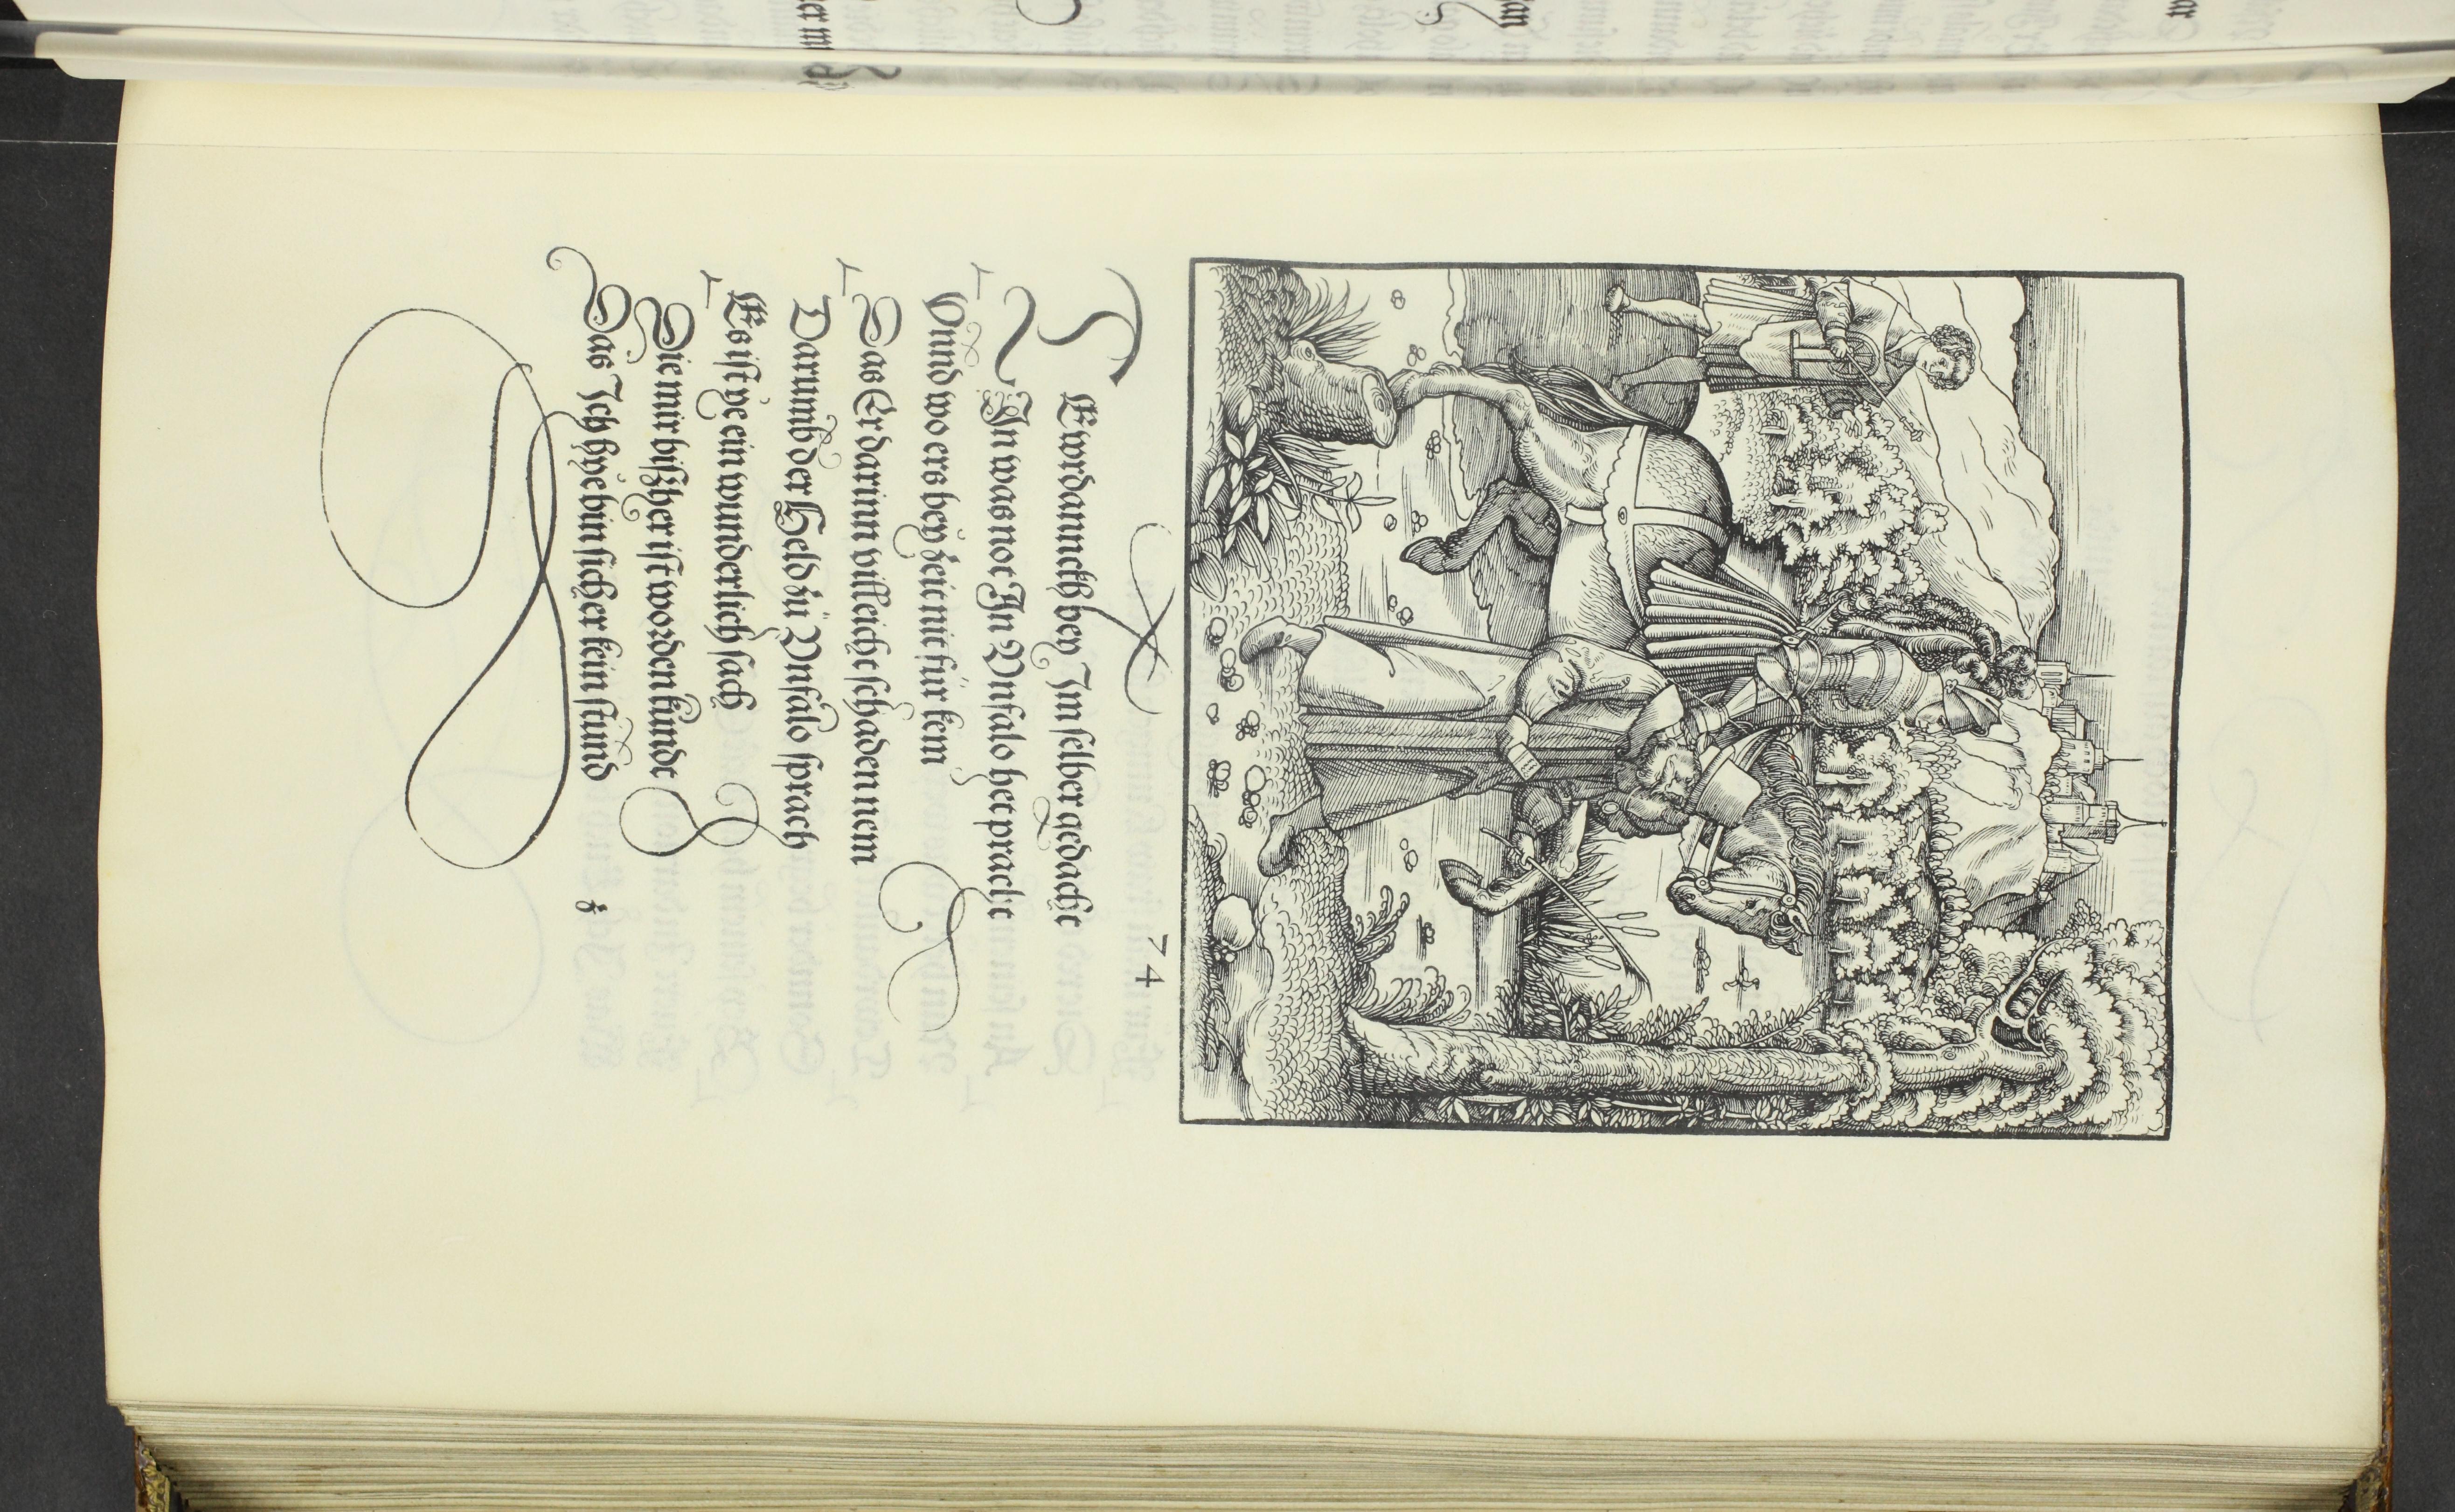 74
Tewrdannckh bey Im selber gedacht
In was not In Vnfalo het pracht
Vnnd wo ers bey zeit nit für kem
Das Er darinn villeicht schaden nem
Darumb der Held zů Vnfalo sprach
Es ist ye ein wunderlich sach
Die mir bißher ist worden kundt
Das Ich hye bin sicher kein stund